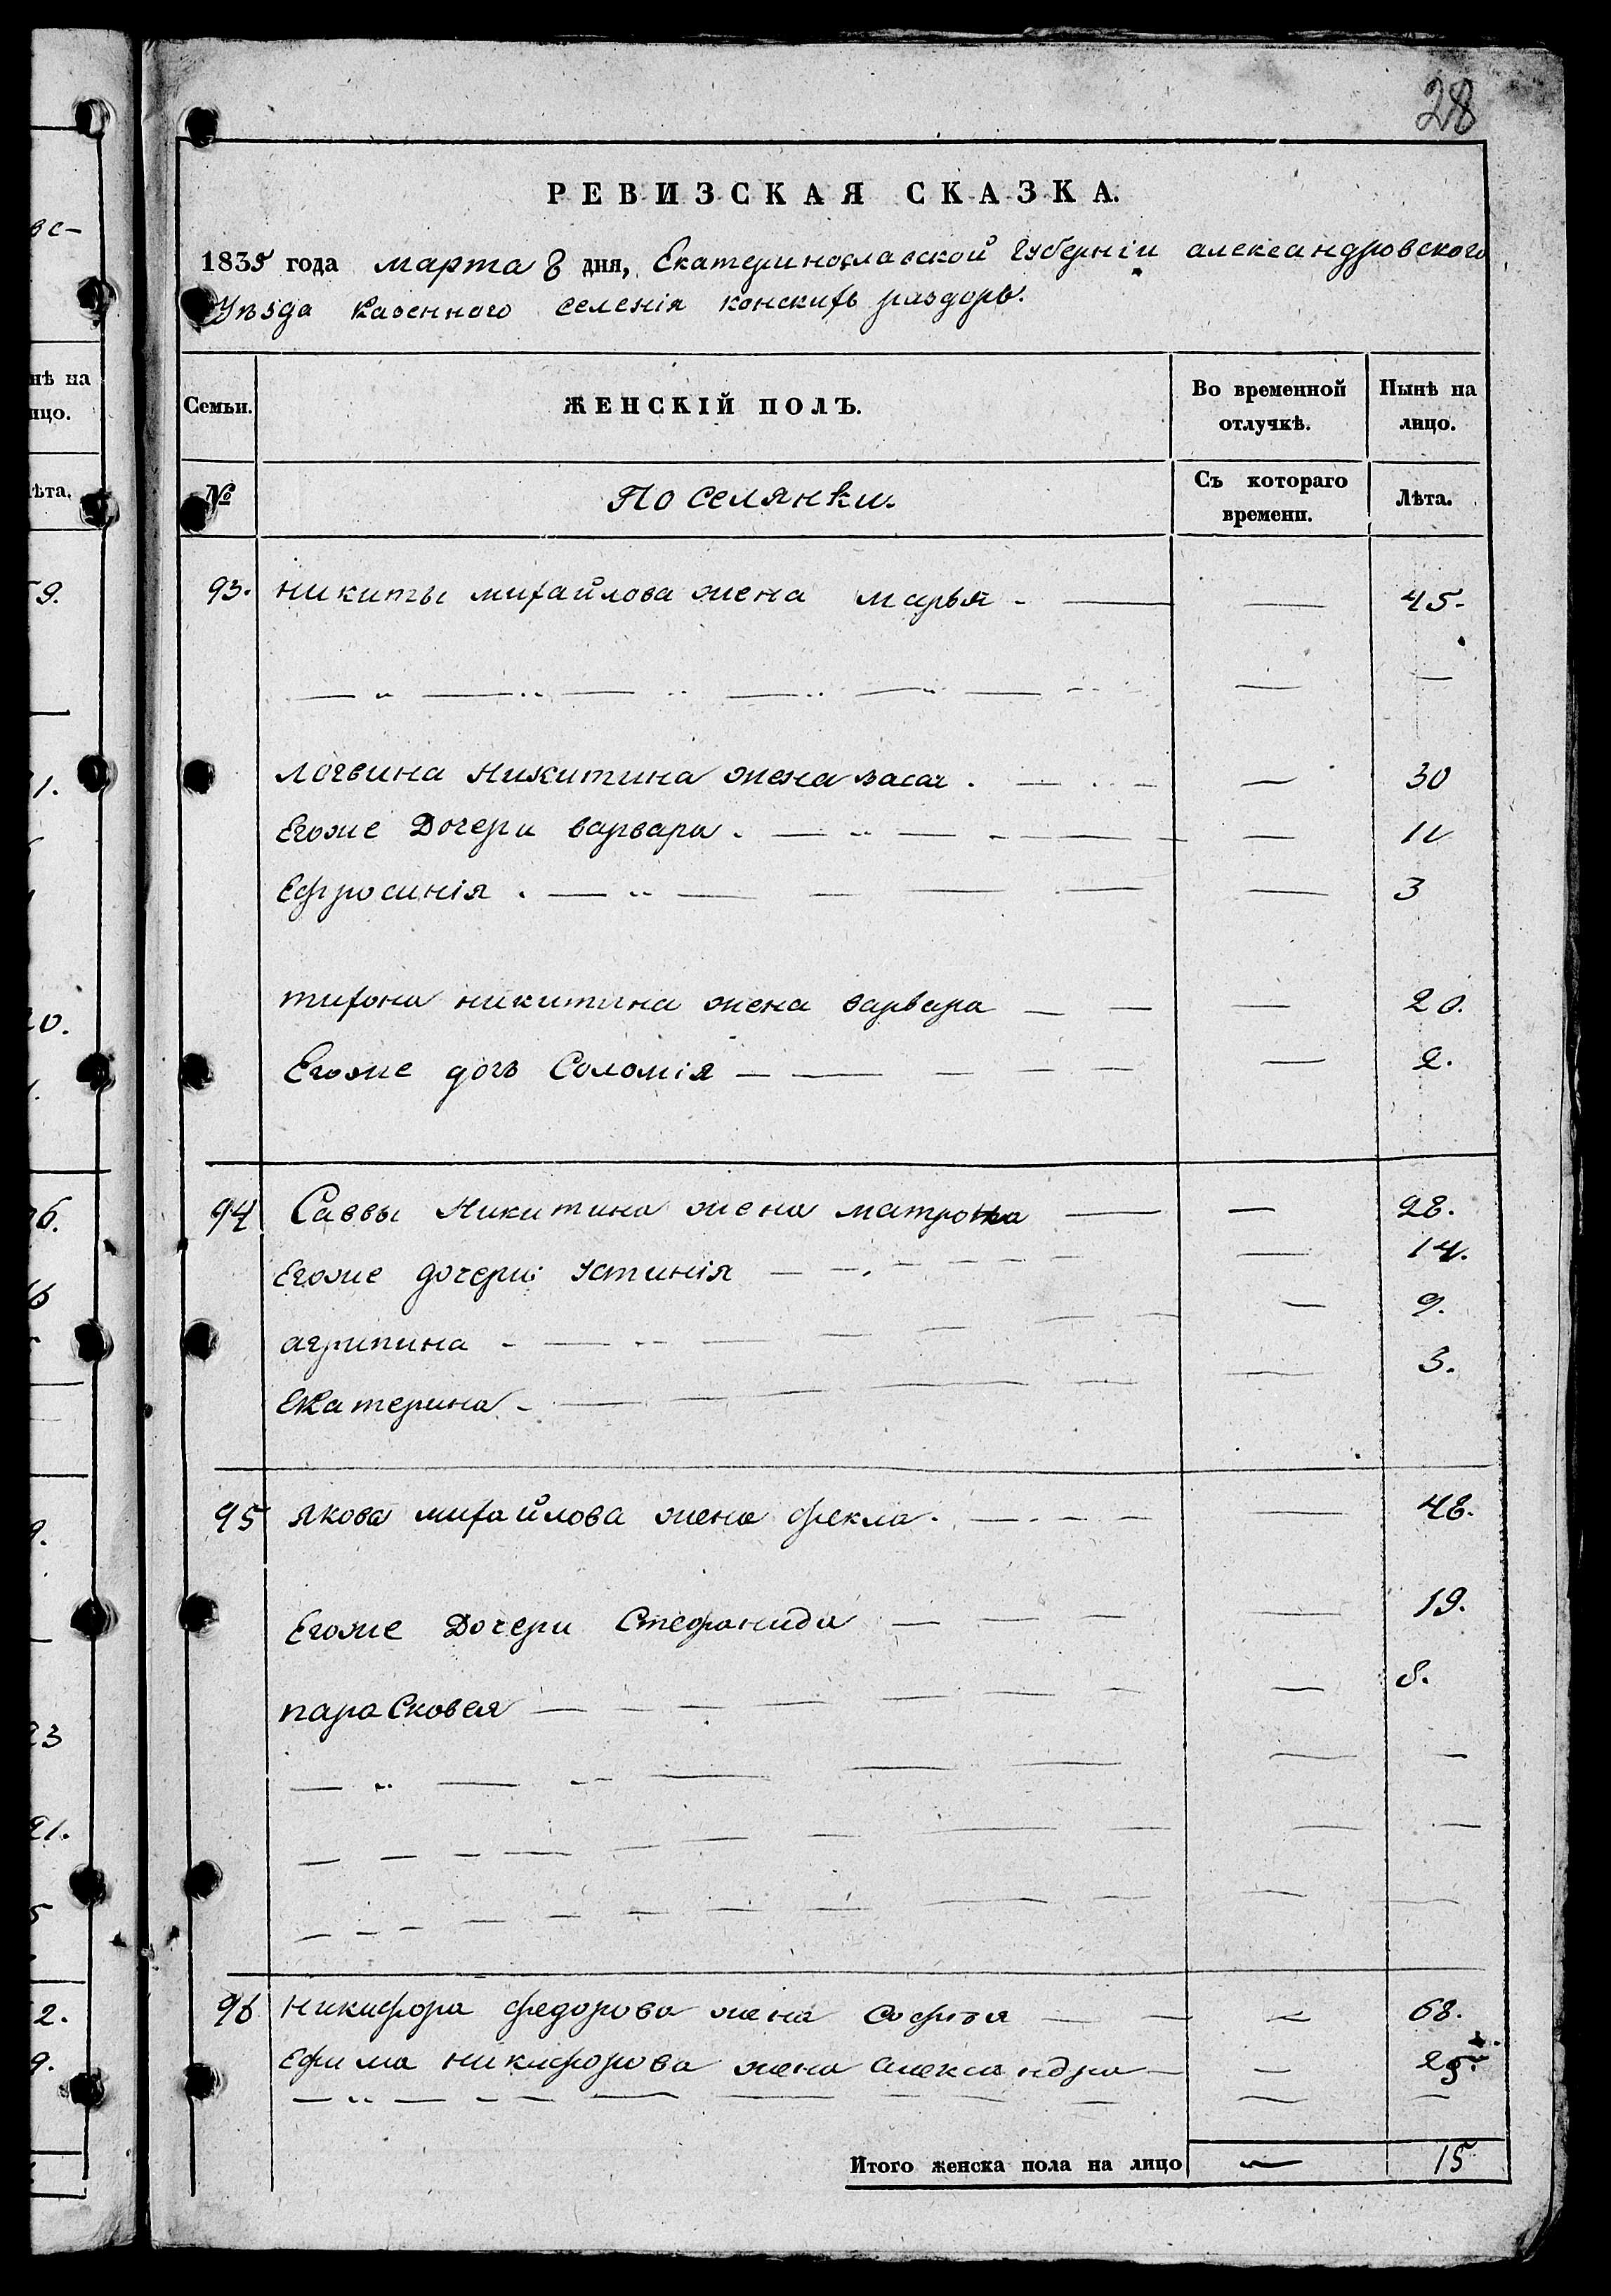 28
РЕВИЗСКАЯ СКАЗКА.
1835 года марта 8 дня, Екатеринославской Губерніи александровского
Уѣзда Казенного селенія конскихъ раздоръ.
Семьи. ЖЕНСКІЙ ПОЛЪ. Во временной отлучкѣ. Нынѣ на лицо.
№ Поселянки. Съ котораго времени. Лѣта.
93. никиты михайлова жена марья - — — 45.
— — —
логвина никитина жена . — — 30
Егоже Дочери варвара . — — 11
Ефросинія . — — 3
тихона никитина жена варвара — — 20.
Егоже дочь Соломія — — 2.
94 Саввы Никитина жена матрона — — 28.
Егоже дочери: устинія — — 14.
агрипина - — — 9.
Екатерина - — — 3.
95 якова михайлова жена фекла. — — 48.
Егоже Дочери Стефанида — — 19.
парасковея — — 8.
— — —
— — —
— — —
96 никифора федорова жена софия — — 68.
ефима никифорова жена александра — — 25.
— — —
Итого женска пола на лицо — 15